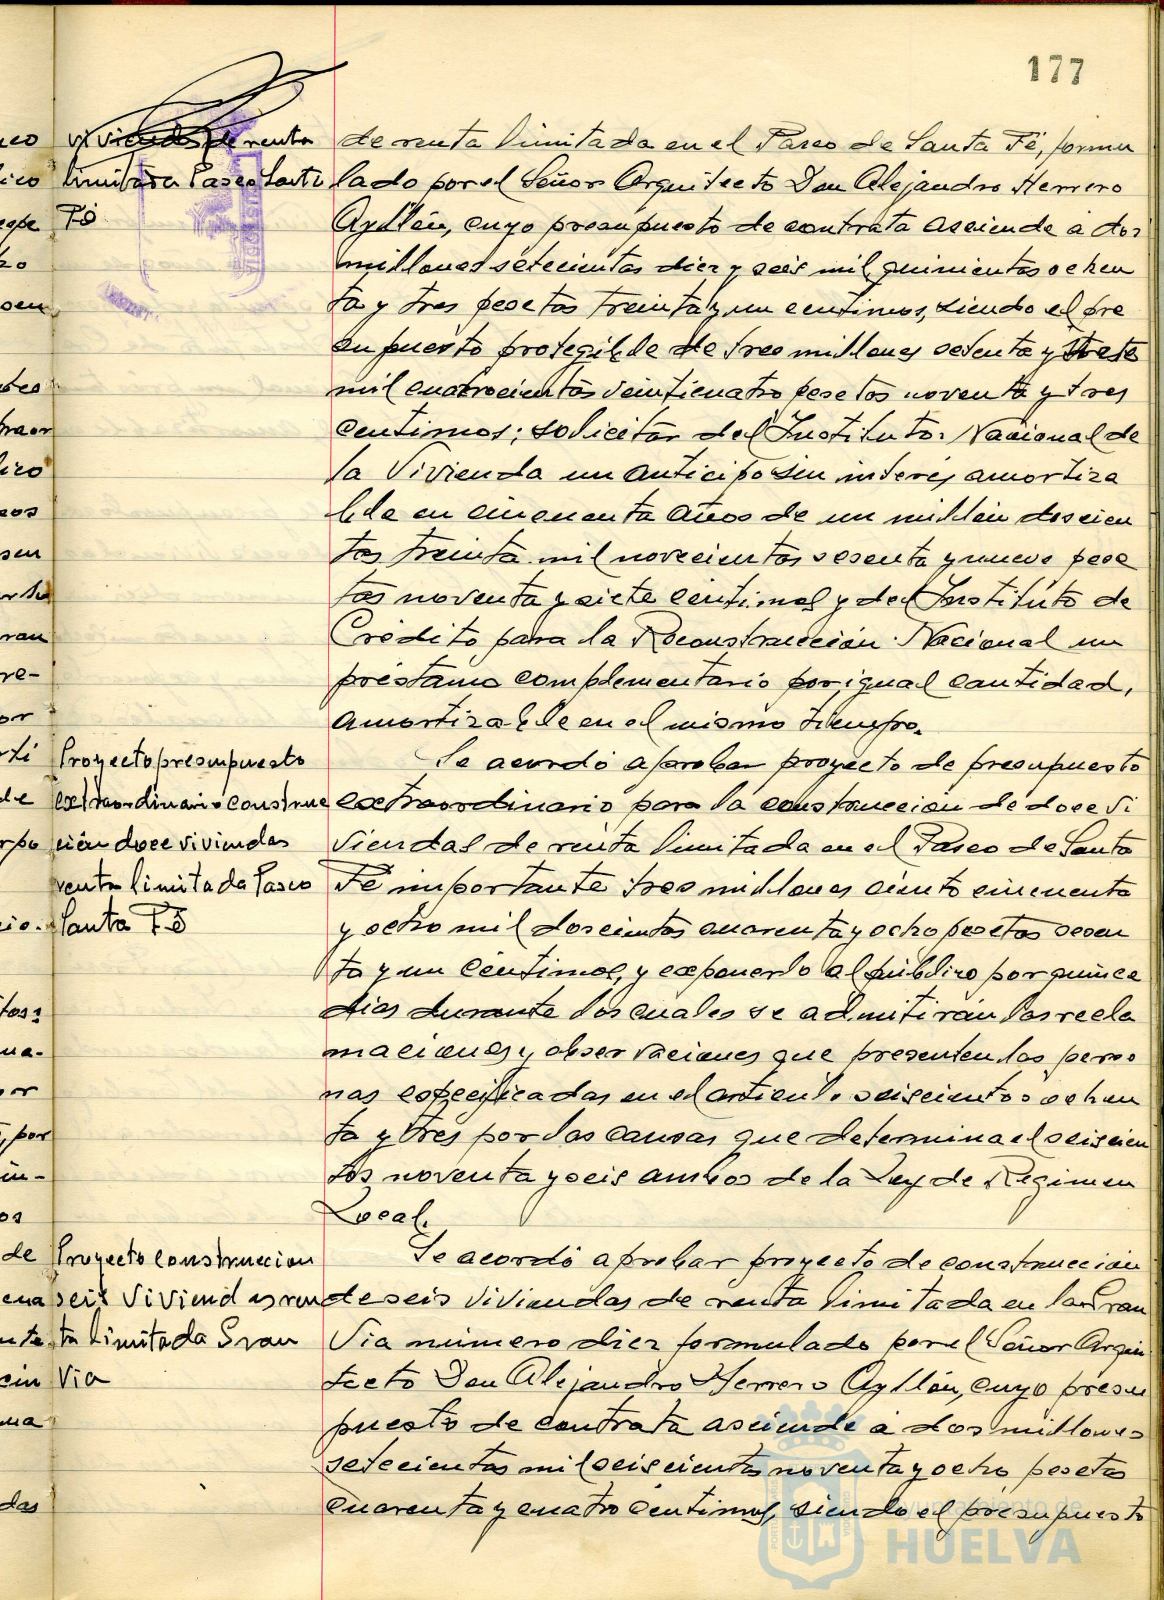 177
viviendas de renta
limitada Paseo Santa
Fé
de renta limitada en el Paseo de Santa Fé, formu
lado por el Señor Arquitecto Don Alejandro Herrero
Ayllón, cuyo presupuesto de contrata asciende a dos
millones setecientas diez y seis mil quinientas ochen
ta y tres pesetas treinta y un centimos, siendo el pre
supuesto protegible de tres millones setenta y siete
mil cuatrocientas veinticuatro pesetas noventa y tres
centimos; solicitar del Instituto Nacional de
la Vivienda un anticipo sin interés amortiza
ble en cincuenta años de un millón doscien
tas treinta mil novecientas sesenta y nueve pese
tas noventa y siete centimos y del Instituto de
Crédito para la Reconstrucción Nacional un
préstamo complementario por igual cantidad,
amortizable en el mismo tiempo.
Proyecto presupuesto
extraordinario construc
ción doce viviendas
renta limitada Paseo
Santa Fé
Se acordó aprobar proyecto de presupuesto
extraordinario para la construcción de doce vi
viendas de renta limitada en el Paseo de Santa
Fé importante tres millones ciento cincuenta
y ocho mil doscientas cuarenta y ocho pesetas sesen
ta y un centimos, y exponerlo al público por quince
dias durante los cuales se admitirán las recla
maciones y observaciones que presenten las perso
nas especificadas en el articulo seiscientos ochen
ta y tres por las causas que determina el seiscien
tos noventa y seis ambos de la Ley de Régimen
Local.
Proyecto construccion
seis viviendas ren
ta limitada Gran
Via
Se acordó aprobar proyecto de construcción
de seis viviendas de renta limitada en la Gran
Via número diez formulado por el Señor Arqui
tecto Don Alejandro Herrero Ayllón, cuyo presu
puesto de contrata asciende a dos millones
setecientas mil seiscientas noventa y ocho pesetas
cuarenta y cuatro centimos, siendo el presupuesto
Ayuntamiento de
HUELVA